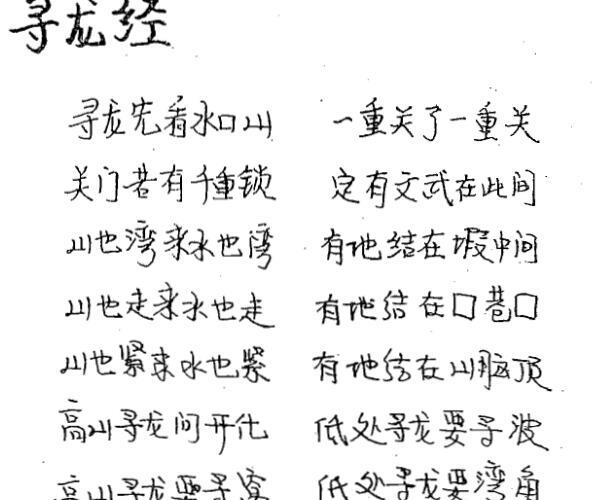 寻龙经
寻龙先看水口山 一重关了一重关
关门若有千重锁 定有文武在此间
山也湾来水也湾 有地结在塅中间
山也走来水也走 有地结在口巷口
山也紧来水也紧 有地结在山脑顶
高山寻龙问开化 低处寻龙要寻波
高山寻龙要寻窝 低处寻龙要湾角